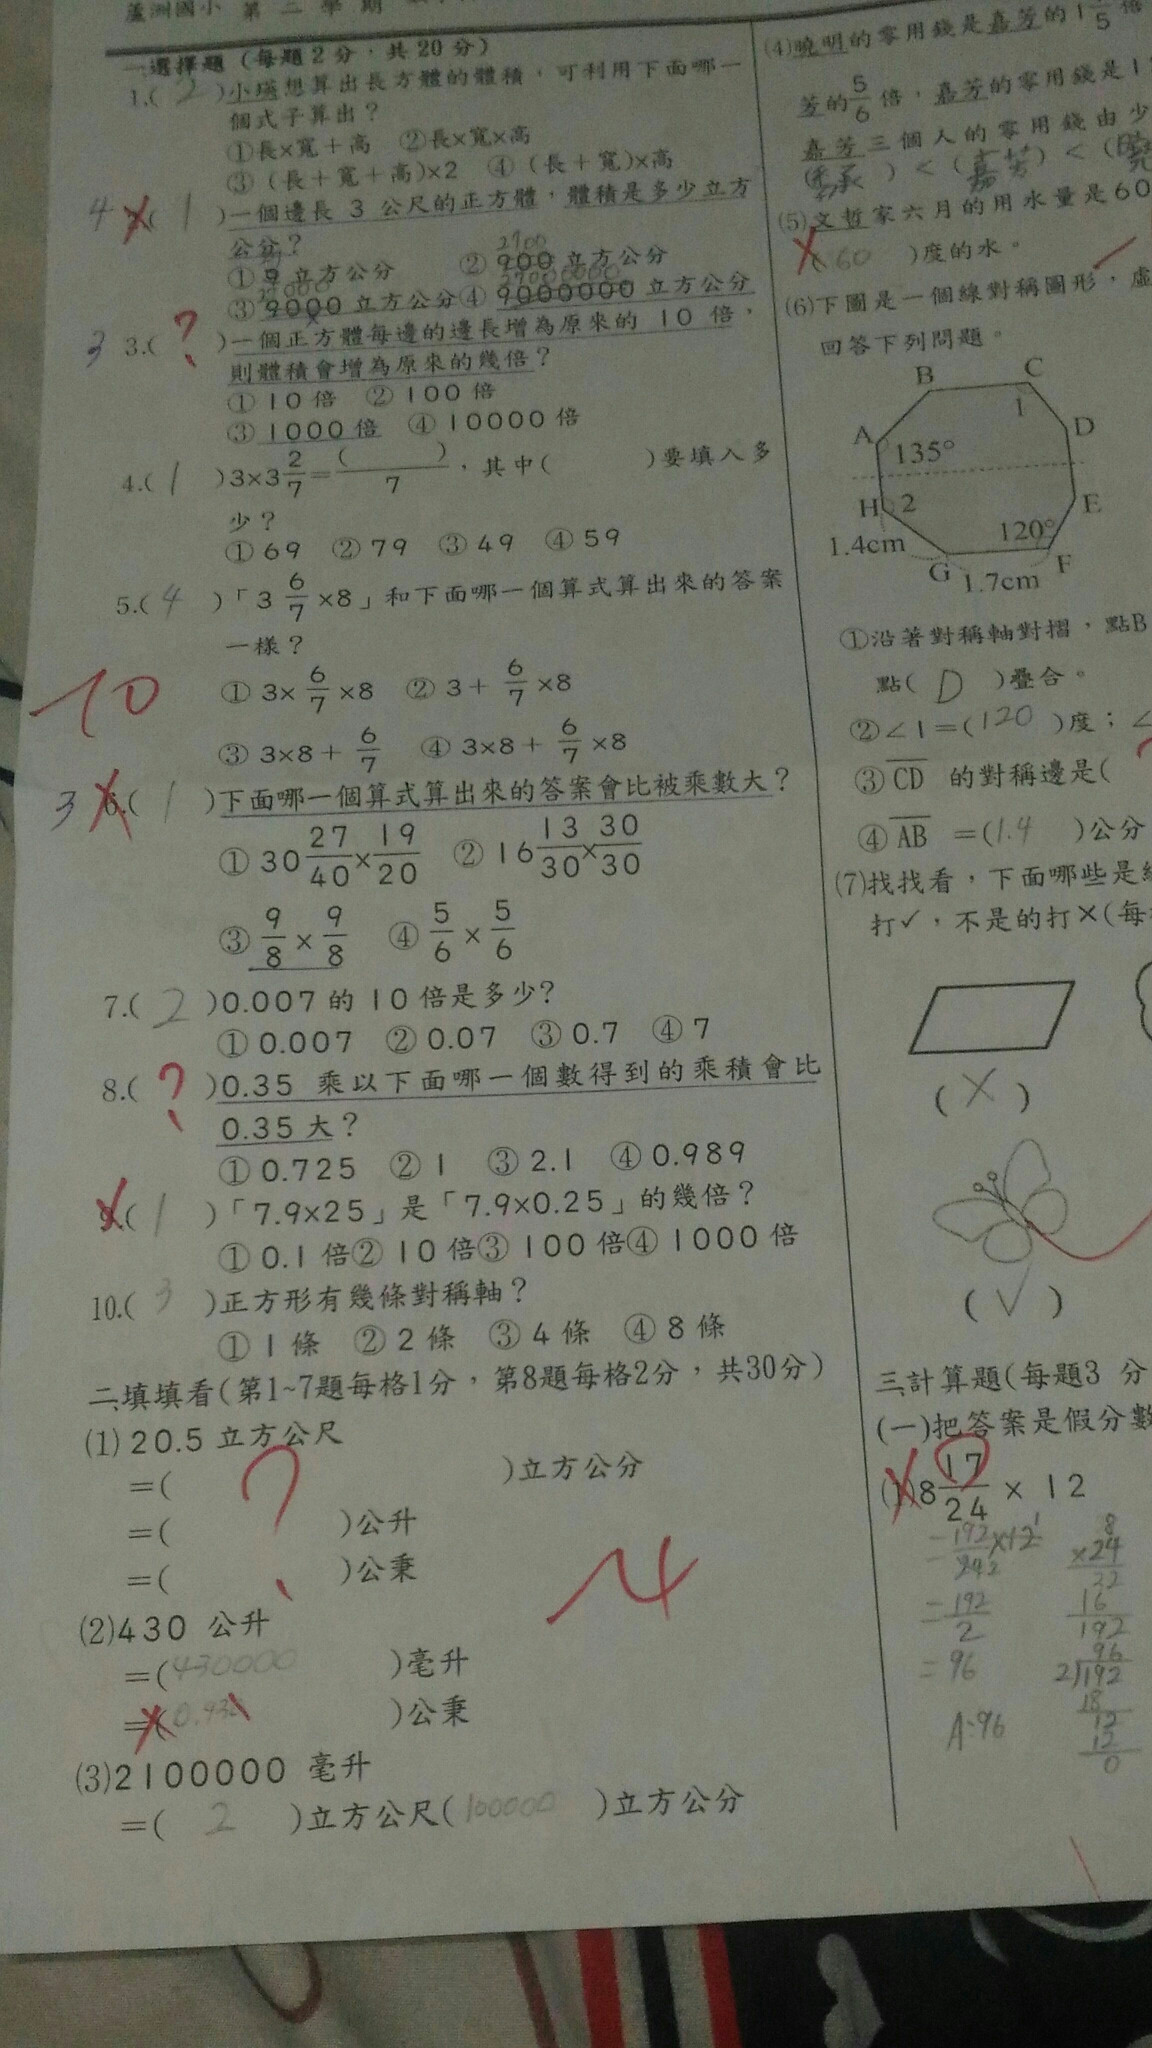 蘆洲國小 第二學期
一選擇題（每題2分，共20分）
1.( 2 )小瑛想算出長方體的體積，可利用下面哪一
個式子算出？
①長×寬＋高 ②長×寬×高
③（長＋寬＋高)×2 ④（長＋寬)×高
4 ( 1 )一個邊長 3 公尺的正方體，體積是多少立方
公分？
2700
①9 立方公分 ② 900 立方公分
27000 27000000
③9000 立方公分④ 9000000 立方公分
3 3.( ? )一個正方體每邊的邊長增為原來的 10 倍，
則體積會增為原來的幾倍？
①10倍 ②100倍
③1000倍 ④10000倍
4.( 1 )3×3 2/7=( )/7，其中( )要填入多
少？
①69 ②79 ③49 ④59
5.( 4 )「3 6/7 ×8」和下面哪一個算式算出來的答案
一樣？
-10
① 3× 6/7 ×8 ② 3＋ 6/7 ×8
③ 3×8＋ 6/7 ④ 3×8＋ 6/7 ×8
3 6.( 1 )下面哪一個算式算出來的答案會比被乘數大？
① 30 27/40 × 19/20 ② 16 13/30 × 30/30
③ 9/8 × 9/8 ④ 5/6 × 5/6
7.( 2 )0.007 的 10 倍是多少?
① 0.007 ② 0.07 ③ 0.7 ④ 7
8.( ? )0.35 乘以下面哪一個數得到的乘積會比
0.35 大？
① 0.725 ② 1 ③ 2.1 ④ 0.989
9.( 1 )「7.9×25」是「7.9×0.25」的幾倍？
① 0.1 倍② 10 倍③ 100 倍④ 1000 倍
10.( 3 )正方形有幾條對稱軸？
① 1 條 ② 2 條 ③ 4 條 ④ 8 條
二填填看(第1~7題每格1分，第8題每格2分，共30分)
(1) 20.5 立方公尺
=( ? )立方公分
=( )公升
=( )公秉
-4
(2)430 公升
=(430000 )毫升
=( )公秉
(3)2100000 毫升
=( 2 )立方公尺(100000 )立方公分
(4)曉明的零用錢是嘉芳的1 /5 倍
芳的5/6倍，嘉芳的零用錢是1
嘉芳三個人的零用錢由少
( ) < (嘉芳) < (曉
(5)文哲家六月的用水量是60
( 60 )度的水。
(6)下圖是一個線對稱圖形，虛
回答下列問題。
B C
1
A D
135°
H 2 E
120°
1.4cm G F
1.7cm
①沿著對稱軸對摺，點B
點( D )疊合。
②∠1=(120 )度；∠
③CD 的對稱邊是( ?
④AB =(1.4 )公分
(7)找找看，下面哪些是
打✓，不是的打×(每
( × )
( ✓ )
三計算題(每題3 分
(一)把答案是假分數
(1)8 17/24 × 12
=192/24 ×12
=192/2
=96
A:96
8
×24
32
16
192
96
2)192
18
12
12
0